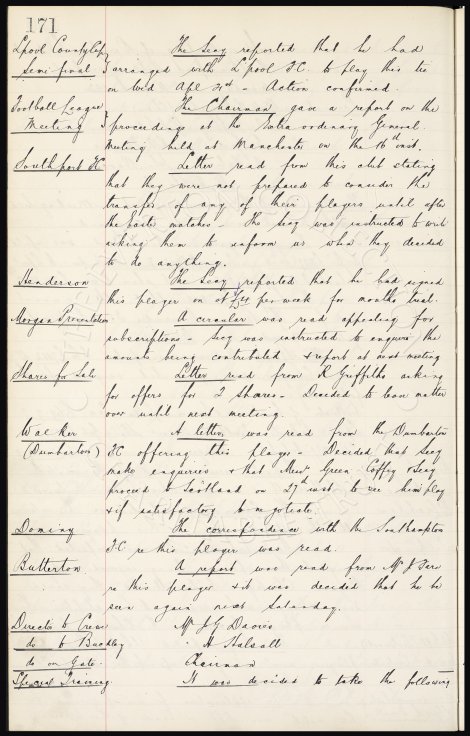 171
Lpool County Cup The Secy reported that he had
Semi-final } arranged with L'pool F.C. to play this tie
on Wed Apl 21st - Action confirmed.
Football League The Chairman gave a report on the
Meeting } proceedings at the Extra ordinary General
Meeting held at Manchester on the 16th inst.
Southport FC Letter read from this club stating
that they were not prepared to consider the
transfer of any of their players until after
the Easter matches - The Secy was instructed to write
asking them to inform us when they decided
to do anything.
Henderson The Secy reported that he had signed
this player on at per week for months trial.
Morgan Presentation A circular was read appealing for
subscriptions - Secy was instructed to enquire the
amount being contributed & report at next meeting
Shares for Sale Letter read from R Griffiths asking
for offers for 2 Shares - Decided to leave matter
over until next meeting.
Walker A letter was read from the Dumbarton
(Dumbarton) FC offering this player - Decided that Secy
make enquiries & that Messrs Green Coffey & Secy
proceed to Scotland on 27th inst. to see him play
& if satisfactory to negotiate.
Dominy The correspondence with the Southampton
F.C. re this player was read.
Butterton A report was read from Mr J
re this player & it was decided that he be
seen again next Saturday.
Directo to Crewe Mr J G Davies
do to Buckley " A Halsall
do on Gate. Chairman
Special Training It was decided to take the following